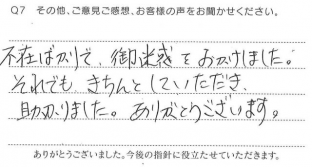 Q7 その他、ご意見ご感想、お客様の声をお聞かせください。
不在ばかりで、御迷惑をおかけしました。
それでも きちんとしていただき、
助かりました。ありがとうございます。
ありがとうございました。今後の指針に役立たせていただきます。